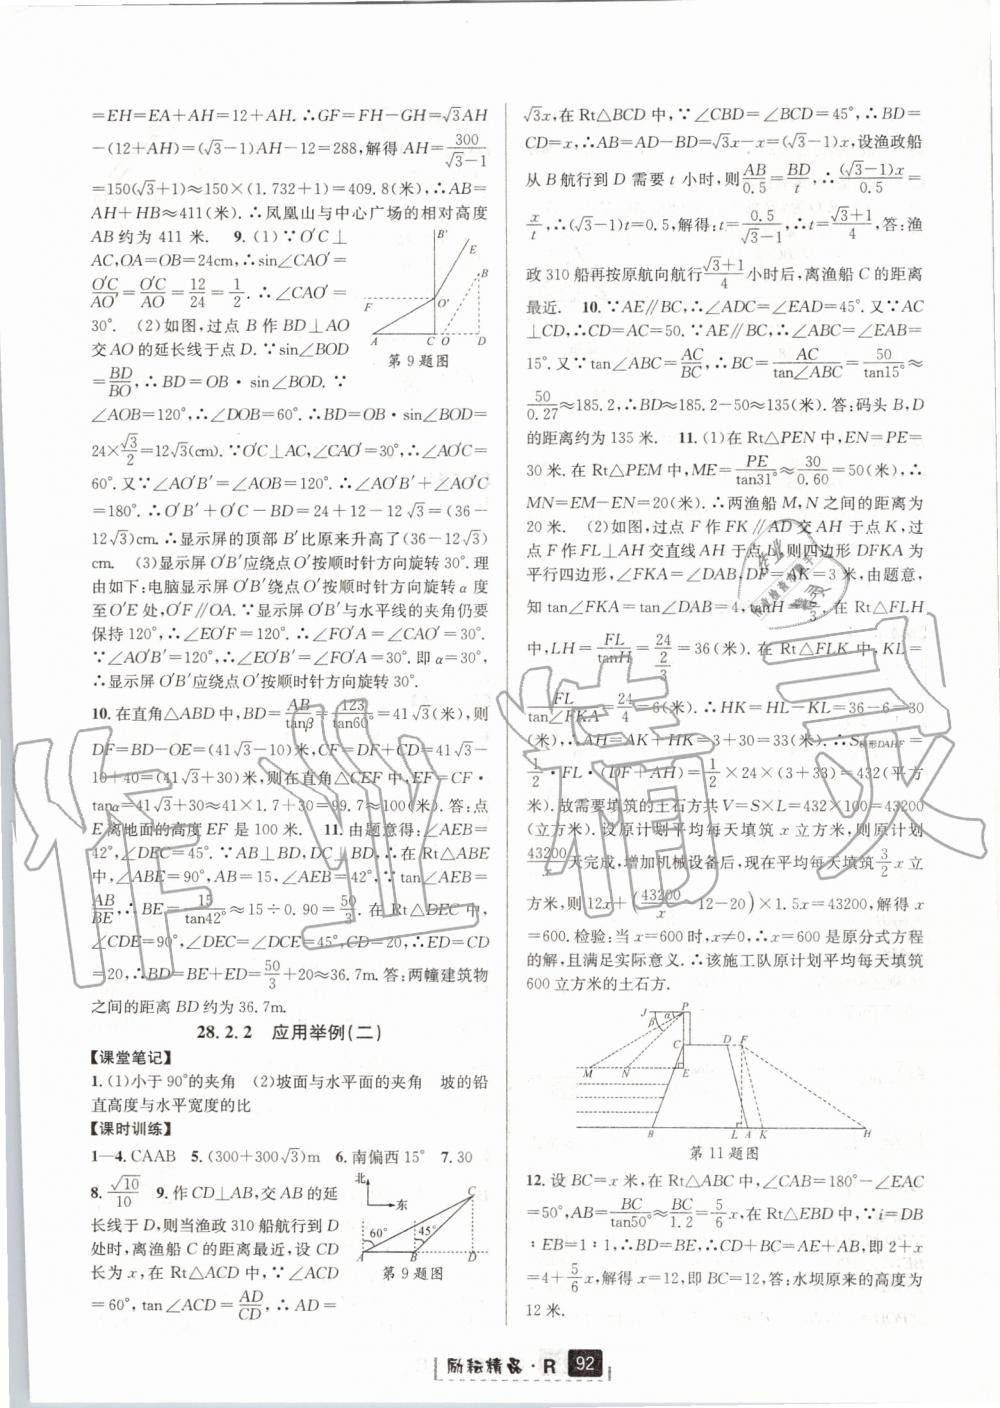 =EH=EA+AH=12+AH.∴GF=FH-GH=√3AH
-(12+AH)=(√3-1)AH-12=288,解得AH=300/(√3-1)
=150(√3+1)≈150×(1.732+1)=409.8(米),∴AB=
AH+HB≈411(米).∴凤凰山与中心广场的相对高度
AB约为411米. 9.(1)∵O'C⊥
AC,OA=OB=24cm,∴sin∠CAO'=
O'C/AO'=O'C/AO=12/24=1/2.∴∠CAO'=
30°. (2)如图,过点B作BD⊥AO
交AO的延长线于点D.∵sin∠BOD
=BD/BO,∴BD=OB·sin∠BOD.∵
∠AOB=120°,∴∠DOB=60°.∴BD=OB·sin∠BOD=
24×√3/2=12√3(cm).∵O'C⊥AC,∠CAO'=30°,∴∠AO'C=
60°.又∵∠AO'B'=∠AOB=120°,∴∠AO'B'+∠AO'C
=180°.∴O'B'+O'C-BD=24+12-12√3=(36-
12√3)cm.∴显示屏的顶部B'比原来升高了(36-12√3)
cm. (3)显示屏O'B'应绕点O'按顺时针方向旋转30°.理
由如下:电脑显示屏O'B'绕点O'按顺时针方向旋转α度
至O'E处,O'F∥OA.∵O'B'与水平线的夹角仍要
保持120°,∴∠EO'F=120°.∴∠FO'A=∠CAO'=30°.
∵∠AO'B'=120°,∴∠EO'B'=∠FO'A=30°.即α=30°,
∴显示屏O'B'应绕点O'按顺时针方向旋转30°.
10.在直角△ABD中,BD=AB/tanβ=123/tan60°=41√3(米),则
DF=BD-OE=(41√3-10)米,CF=DF+CD=41√3-
10+40=(41√3+30)米,则在直角△CEF中,EF=CF·
tanα=41√3+30≈41×1.7+30=99.7≈100(米).答:点
E离地面的高度EF是100米. 11.由题意得:∠AEB=
42°,∠DEC=45°.∵AB⊥BD,DC⊥BD,∴在Rt△ABE
中,∠ABE=90°,AB=15,∠AEB=42°,∵tan∠AEB=
AB/BE,∴BE=15/tan42°≈15÷0.90=50/3.在Rt△DEC中,
∠CDE=90°,∠DEC=∠DCE=45°,CD=20,∴ED=CD
=20,∴BD=BE+ED=50/3+20≈36.7m.答:两幢建筑物
之间的距离BD约为36.7m.
28.2.2 应用举例(二)
【课堂笔记】
1.(1)小于90°的夹角 (2)坡面与水平面的夹角 坡的铅
直高度与水平宽度的比
【课时训练】
1—4.CAAB 5.(300+300√3)m 6.南偏西15° 7.30
8.√10/10 9.作CD⊥AB,交AB的延
长线于D,则当渔政310船航行到D
处时,离渔船C的距离最近,设CD
长为x,在Rt△ACD中,∵∠ACD
=60°,tan∠ACD=AD/CD,∴AD=
B' E B F O' A C O D
第9题图
北 东 C 60° 45° A B D
第9题图
√3x,在Rt△BCD中,∵∠CBD=∠BCD=45°,∴BD=
CD=x,∴AB=AD-BD=√3x-x=(√3-1)x,设渔政船
从B航行到D需要t小时,则AB/0.5=BD/t,∴(√3-1)x/0.5=
x/t,∴(√3-1)t=0.5,解得:t=0.5/(√3-1),∴t=(√3+1)/4,答:渔
政310船再按原航向航行(√3+1)/4小时后,离渔船C的距离
最近. 10.∵AE∥BC,∴∠ADC=∠EAD=45°.又∵AC
⊥CD,∴CD=AC=50.∵AE∥BC,∴∠ABC=∠EAB=
15°.又∵tan∠ABC=AC/BC,∴BC=AC/tan∠ABC=50/tan15°≈
50/0.27≈185.2,∴BD≈185.2-50≈135(米).答:码头B,D
的距离约为135米. 11.(1)在Rt△PEN中,EN=PE=
30米.在Rt△PEM中,ME=PE/tan31°≈30/0.60=50(米),∴
MN=EM-EN=20(米).∴两渔船M,N之间的距离为
20米. (2)如图,过点F作FK∥AD交AH于点K,过
点F作FL⊥AH交直线AH于点L,则四边形DFKA为
平行四边形,∠FKA=∠DAB,DF=AK=3米,由题意,
知tan∠FKA=tan∠DAB=4,tanH=2/3,在Rt△FLH
中,LH=FL/tanH=24/(2/3)=36(米).在Rt△FLK中,KL=
FL/tan∠FKA=24/4=6(米).∴HK=HL-KL=36-6=30
(米),∴AH=AK+HK=3+30=33(米).∴S梯形DAHF=
1/2·FL·(DF+AH)=1/2×24×(3+33)=432(平方
米).故需要填筑的土石方共V=S×L=432×100=43200
(立方米).设原计划平均每天填筑x立方米,则原计划
43200/x天完成,增加机械设备后,现在平均每天填筑3/2x立
方米,则12x+(43200/x-12-20)×1.5x=43200,解得x
=600.检验:当x=600时,x≠0,∴x=600是原分式方程
的解,且满足实际意义.∴该施工队原计划平均每天填筑
600立方米的土石方.
J P α β C D F M N E B L A K H
第11题图
12.设BC=x米,在Rt△ABC中,∠CAB=180°-∠EAC
=50°,AB=BC/tan50°≈BC/1.2=5/6x,在Rt△EBD中,∵i=DB
:EB=1:1,∴BD=BE,∴CD+BC=AE+AB,即2+x
=4+5/6x,解得x=12,即BC=12,答:水坝原来的高度为
12米.
励耘精品·R 92
作业精灵